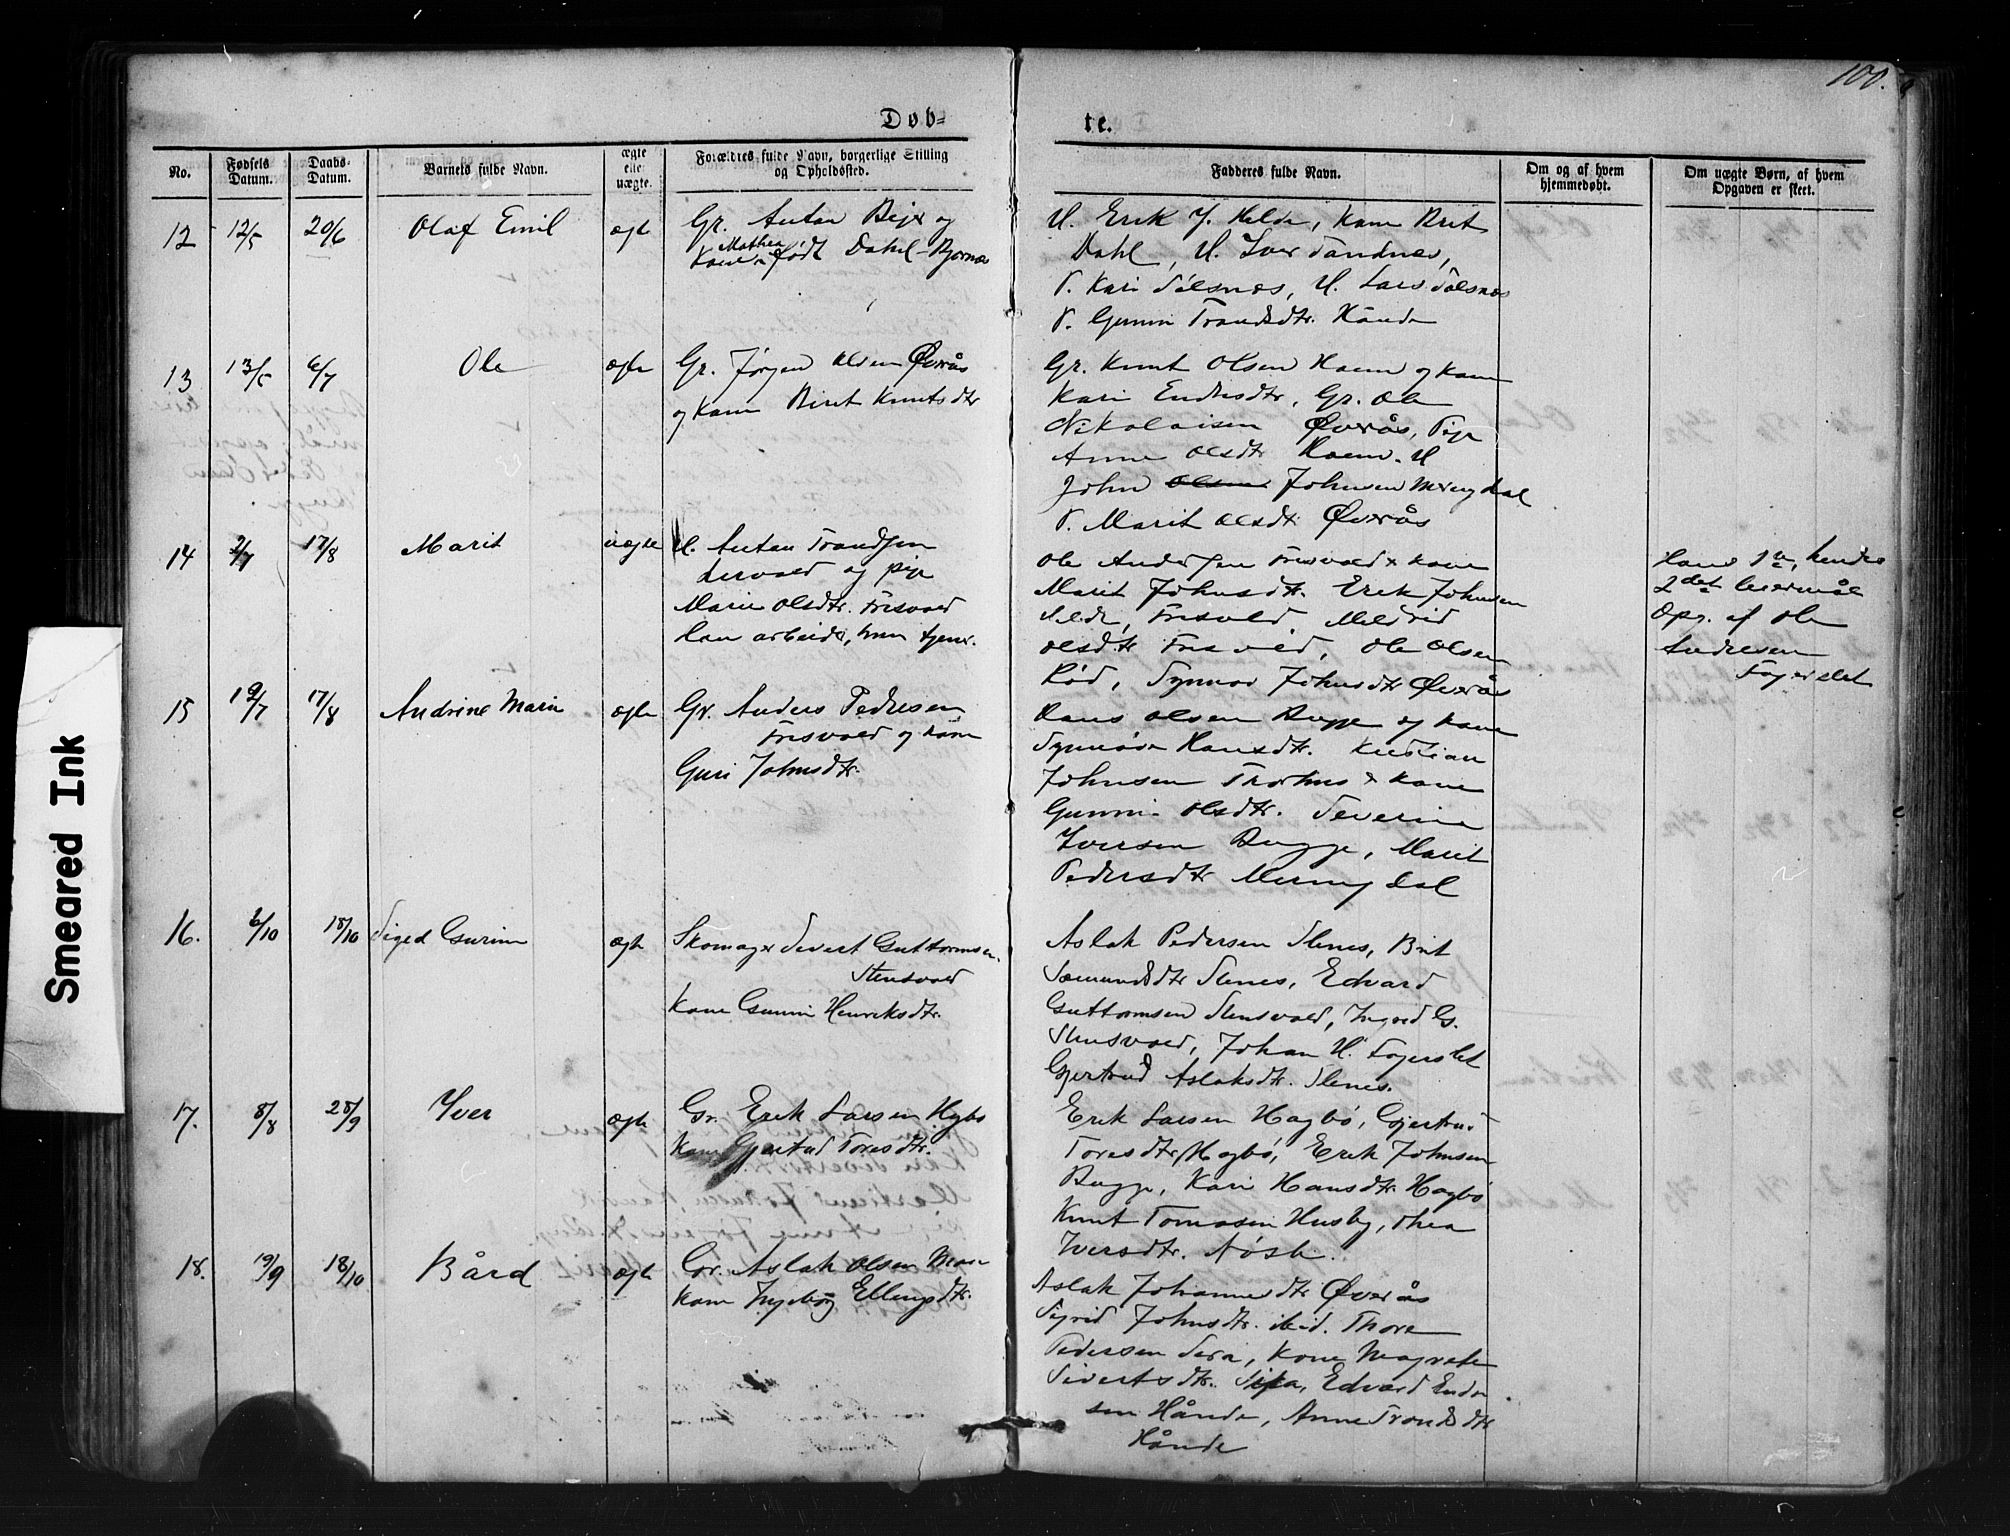 100.
Døb=
te.
No.
Fødsels Datum.
Daabs= Datum.
Barnets fulde Navn.
ægte eller uægte.
Forældres fulde Navn, borgerlige Stilling og Opholdssted.
Fadderes fulde Navn.
Om og af hvem hjemmedøbt.
Om uægte Børn, af hvem Opgaven er skeet.
12 12/5 20/6 Olaf Emil ægte
Gr. Anton og
Kone Mathea født Dahl - Bjørnæs
U. Erik J. Helde, Kone Brit
Dahl, U. Iver Sandnes,
P. Kari Sølsnæs, U. Lars Sølsnæs
P. Gunni Trondsdtr. Hånde
13 13/5 6/7 Ole ægte
Gr. Jørgen Olsen Øverås
og Kone Beret Knutsdtr
Gr. Knut Olsen Hoem og kone
Kari Endresdtr, Gr. Ole
Nikolaisen Øverås, Pige
Anne Olsdtr Hoem. U
John Olsen Johnsen Meringdal
P. Marit Olsdtr Øverås
14 2/7 17/8 Marit uægte
U. Anton Trondsen
og pige
Marie Olsdtr. Frisvold
han arbeider, hun tjener.
Ole Andersen Frisvold & kone
Marit Johnsdtr. Erik Johnsen
Helde, Frisvold, Meldrid
Olsdtr Frisvold, Ole Olsen
Rød, Synnøv Johnsdtr Øverås
Hans 1ste, hendes
2det leiermål
Opg. af Ole
Andresen
Fagerslet
15 19/7 17/8 Andrine Marie ægte
Gr. Anders Pedersen
Frisvold og kone
Guri Johnsdtr.
Hans Olsen Bugge og kone
Synnøve Hansdtr. Kristian
Johnsen Thorhus & kone
Gunni Olsdtr. Severin
Iversen Bugge, Marit
Pedersdtr Meringdal
16. 6/10 18/10 Gurine ægte
Skomager Sivert Guttormsen
Stensvold
Kone Gunni Henriksdtr.
Aslak Pedersen Slenes, Brit
Sæmundsdtr Slenes, Edvard
Guttormsen Stensvold, Ingrid G.
Stensvold, Johan H. Fagerslet
Gjertrud Aslaksdtr. Slenes.
17. 8/8 28/9 Iver ægte
Gr. Erik Larsen Hagbø
Kone Gjertrud Toresdtr.
Erik Larsen Hagbø, Gjertrud
Toresdtr Hagbø, Erik Johnsen
Bugge, Kari Hansdtr Hagbø
Knut Tomasen Husby, Thea
Iversdtr. Nøsti.
18. 19/9 18/10 Bård ægte
Gr. Aslak Olsen
Kone Ingebørg Ellingsdtr.
Aslak Johannesdtr Øverås
Sigrid Johnsdtr. ibid. Thore
Pedersen Sira, Kone Magrete
Sivertsdtr. Sira, Edvard Endre
sen Hånde, Anne Trondsdtr
Hånde
Smeared Ink